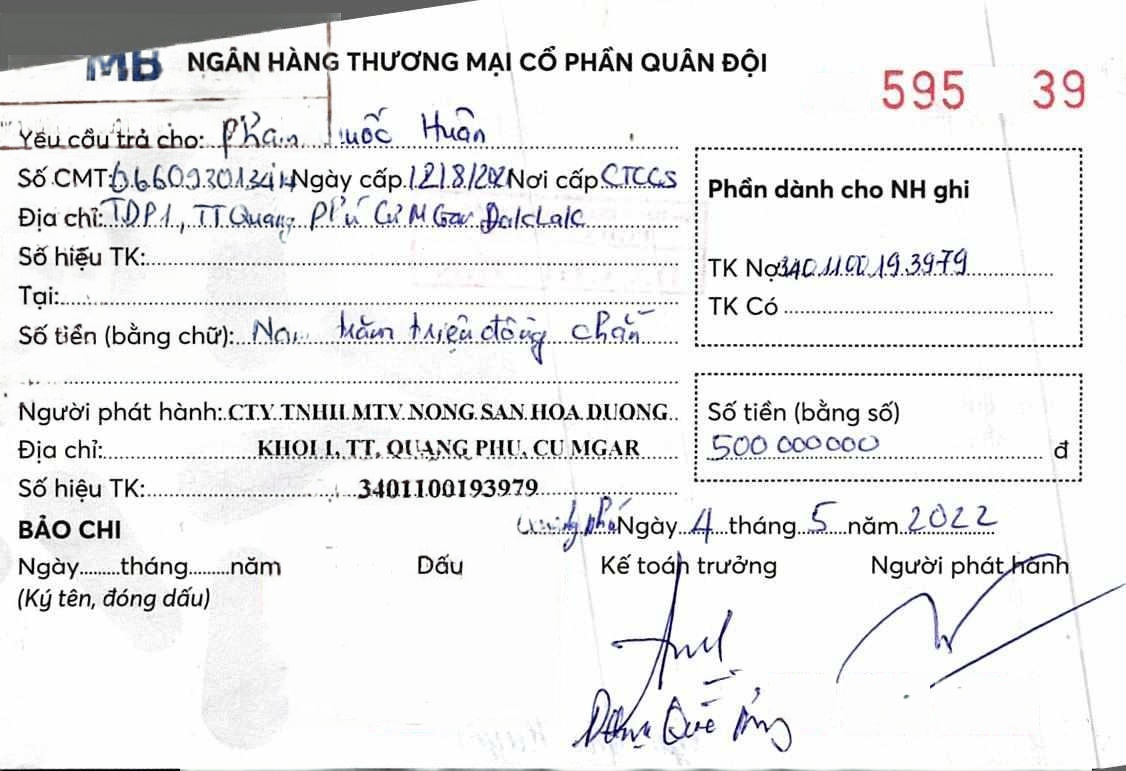 MB NGÂN HÀNG THƯƠNG MẠI CỔ PHẦN QUÂN ĐỘI
595 39
Yêu cầu trả cho: Huân
Số CMT: Ngày cấp Nơi cấp CTCCS
Địa chỉ: TDP1, TT Quảng Phú Cư M Gar DakLak
Số hiệu TK:
Tại:
Số tiền (bằng chữ): trăm triệu đồng chẵn
Phần dành cho NH ghi
TK Nợ 3401100193979
TK Có
Người phát hành: CTY TNHH MTV NONG SAN HOA DUONG
Địa chỉ: KHOI 1, TT. QUANG PHU, CU MGAR
Số hiệu TK: 3401100193979
Số tiền (bằng số)
500 000000 đ
BẢO CHI
Ngày 4 tháng 5 năm 2022
Ngày.........tháng.........năm
(Ký tên, đóng dấu)
Dấu
Kế toán trưởng
Người phát hành